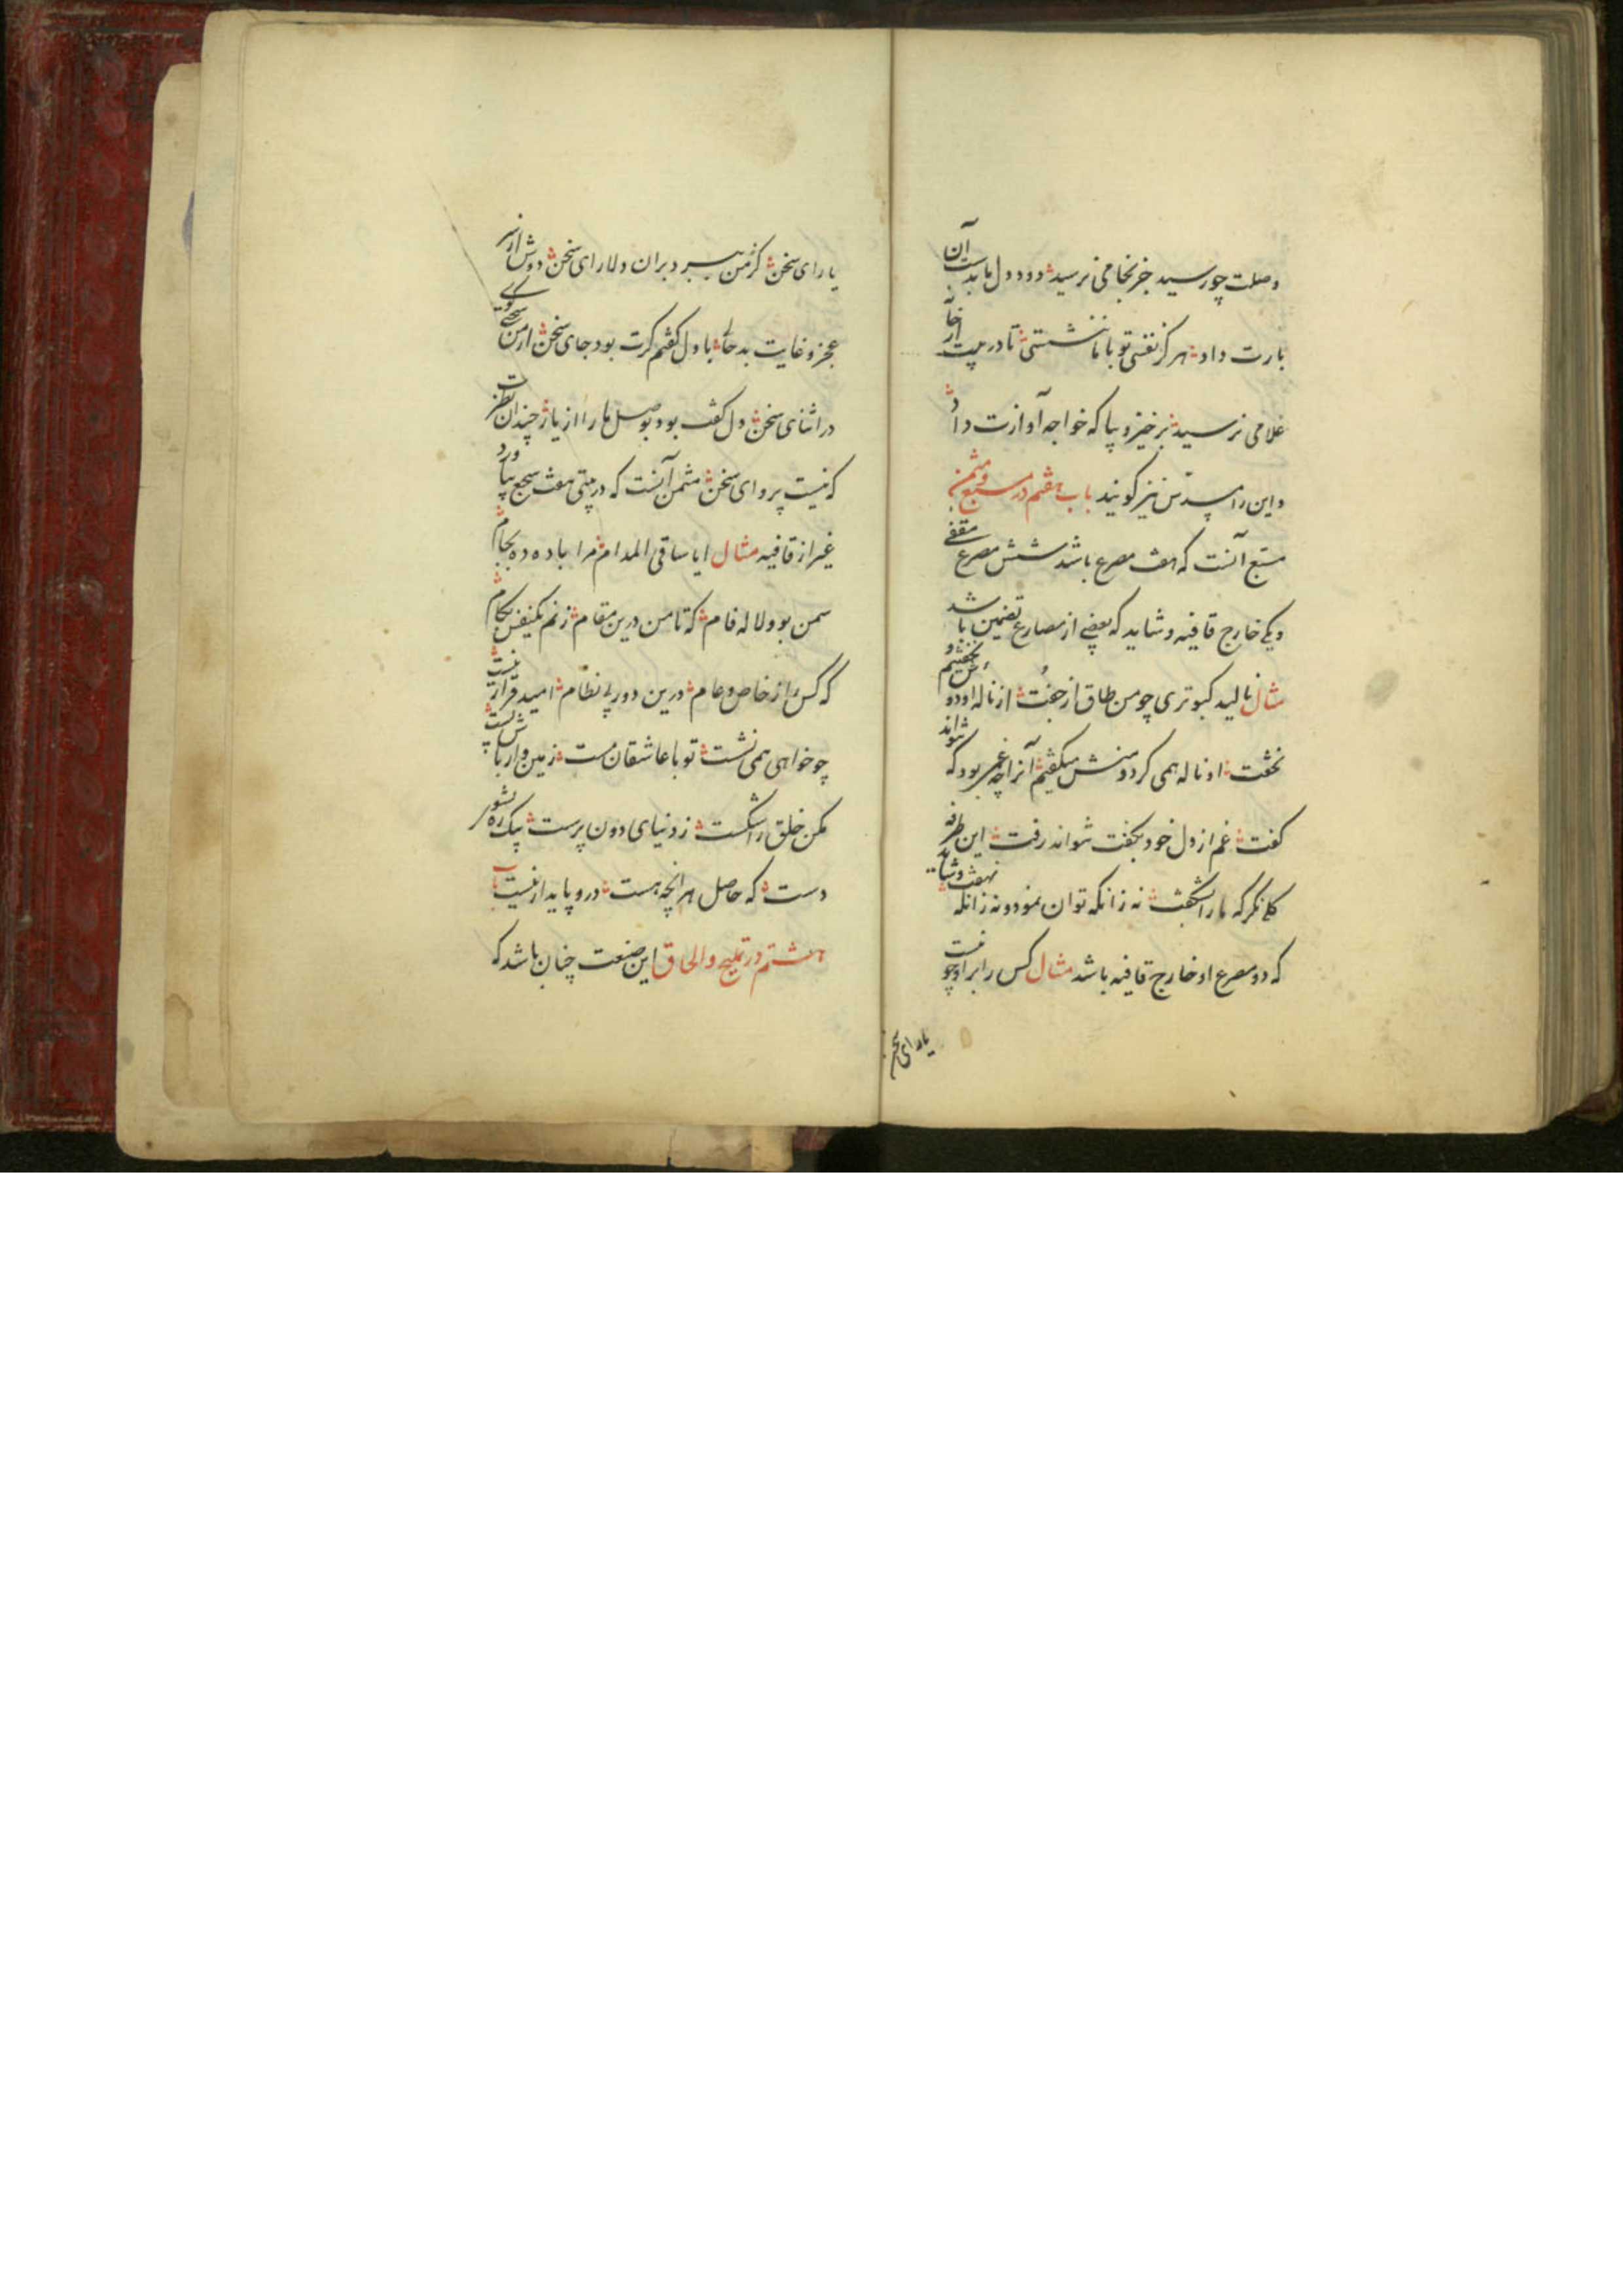 وصلت چو رسید جز بخامی نرسید دود دل ما بدست آن
بارت داد هرگز نفسی تو با ما ننشستی تا در پیت از خانه
غلامی نرسید برخیز و بیا که خواجه آوازت داد
و این را مسدس نیز گویند باب هفتم در مسبع و مثمن
مسبع آنست که هفت مصرع باشد شش مصرع مقفی
و یکی خارج قافیه و شاید که بعضی از مصارع تضمین باشد
مثال نالید کبوتری چو من طاق از جفت از ناله او دوش نخفتیم و
نخفت او ناله همی کرد و منش میگفتم آنرا چه غم بود که نتواند
گفت غم از دل خود بگفت نتواند رفت این طرفه
گلی نگر که ما را بشگفت نه زانکه توان نمود و نه زانکه نهفت و شاید
که دو مصرع او خارج قافیه باشد مثال کس را بر او چو نیست
یارای سخن
یارای سخن گر من ببرد بران دلارای سخن دوش از سر
عجز و غایت بدحالی با دل گفتم گرت بود جای سخن از من سخنی بگوی
در اثنای سخن دل گفت بود بوصل ما را از یار چندان نظرت
که نیست پروای سخن مثمن آنست که در بیتی هفت سجع بیاورد
غیر از قافیه مثال ایا ساقی المدام مرا باده ده بجام
سمن بو و لاله فام که تا من درین مقام زنم یکنفس بکام
که کس را ز خاص و عام درین دور بی نظام امید قرار نیست
چو خواهی همی نشست تو با عاشقان مست زمین وار باش پست
مکن خلق را شکست ز دنیای دون پرست بیک ره بشوی
دست که حاصل هر آنچه هست درو پایدار نیست باب
هشتم در تملیح و الحاق این صنعت چنان باشد که